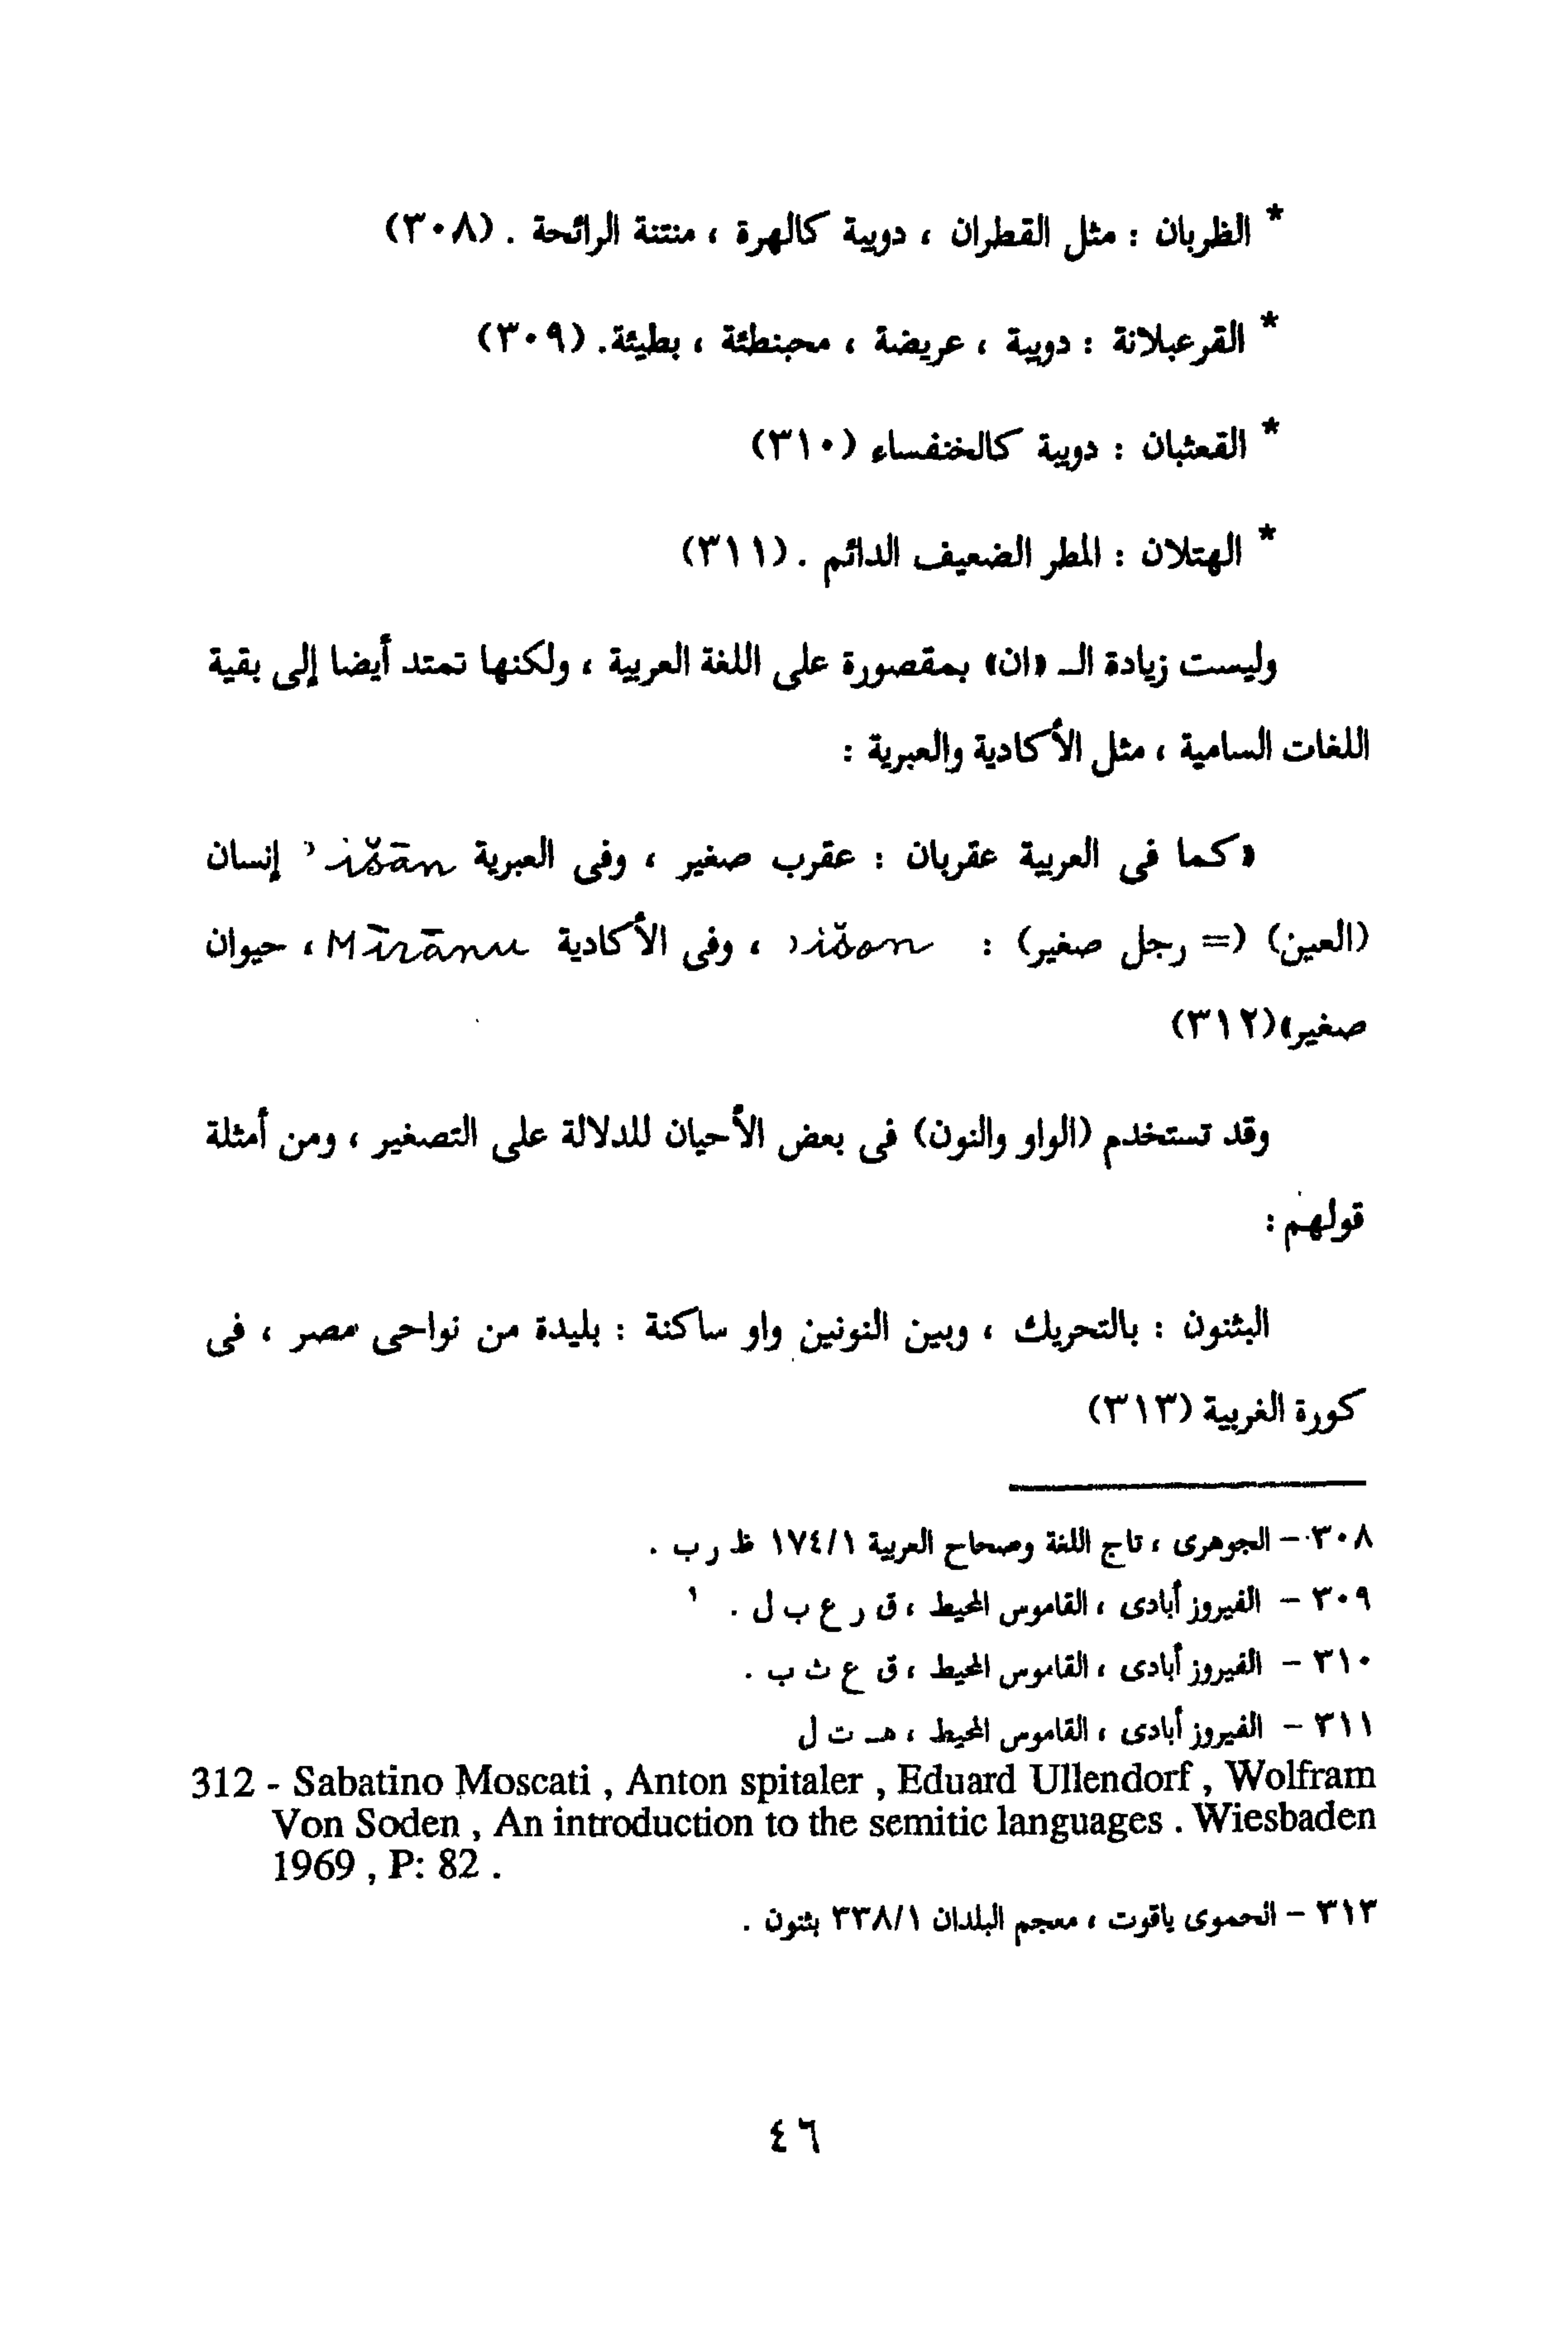 * الظربان : مثل القطران ، دويبة كالهرة ، منتنة الرائحة . (٣٠٨)
* القرعبلانة : دويبة ، عريضة ، محبنطئة ، بطيئة. (٣٠٩)
* القعثبان : دويبة كالخنفساء (٣١٠)
* الهتلان : المطر الضعيف الدائم . (٣١١)
وليست زيادة الـ «ان» بمقصورة على اللغة العربية ، ولكنها تمتد أيضا إلى بقية
اللغات السامية ، مثل الأكادية والعبرية :
«كما فى العربية عقربان : عقرب صغير ، وفى العبرية ʾišān إنسان
(العين) (= رجل صغير) : ʾišon ، وفى الأكادية Mīrānu ، حيوان
صغير»(٣١٢)
وقد تستخدم (الواو والنون) فى بعض الأحيان للدلالة على التصغير ، ومن أمثلة
قولهم :
البثنون : بالتحريك ، وبين النونين واو ساكنة : بليدة من نواحى مصر ، فى
كورة الغربية (٣١٣)
٣٠٨ – الجوهرى ، تاج اللغة وصحاح العربية ١٧٤/١ ظ ر ب .
٣٠٩ – الفيروز أبادى ، القاموس المحيط ، ق ر ع ب ل .
٣١٠ – الفيروز أبادى ، القاموس المحيط ، ق ع ث ب .
٣١١ – الفيروز أبادى ، القاموس المحيط ، هـ ت ل
312 - Sabatino Moscati , Anton spitaler , Eduard Ullendorf , Wolfram
Von Soden , An introduction to the semitic languages . Wiesbaden
1969 , P: 82 .
٣١٣ – الحموى ياقوت ، معجم البلدان ٣٣٨/١ بثنون .
٤٦